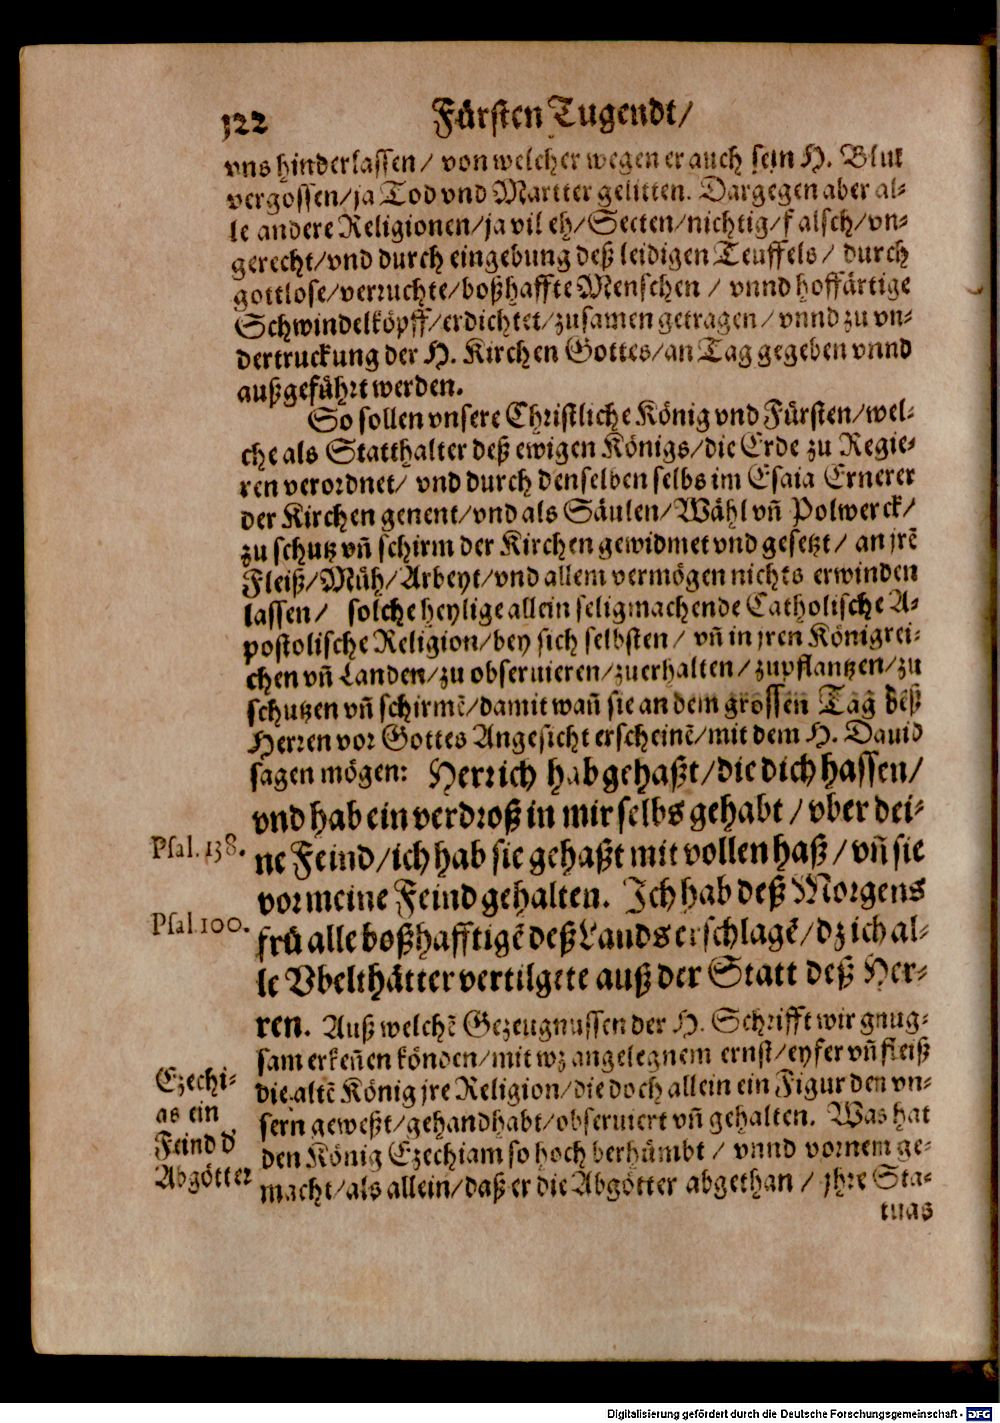 122 Fürsten Tugendt/
vns hinderlassen/ von welcher wegen er auch sein H. Blut
vergossen/ja Tod vnd Martter gelitten. Dargegen aber al-
le andere Religionen/ja vil eh/Secten/nichtig/falsch/vn-
gerecht/vnd durch eingebung deß leidigen Teuffels/ durch
gottlose/verruchte/boßhaffte Menschen / vnnd hoffärtige
Schwindelköpff/erdichtet/zusamen getragen/ vnnd zu vn-
dertruckung der H. Kirchen Gottes/an Tag gegeben vnnd
außgeführt werden.
So sollen vnsere Christliche König vnd Fürsten/wel-
che als Statthalter deß ewigen Königs/die Erde zu Regie-
ren verordnet/ vnd durch denselben selbs im Esaia Ernerer
der Kirchen genent/vnd als Säulen/Wähl vñ Polwerck/
zu schutz vñ schirm der Kirchen gewidmet vnd gesetzt/ an jrẽ
Fleiß/Müh/Arbeyt/vnd allem vermögen nichts erwinden
lassen/ solche heylige allein seligmachende Catholische A-
postolische Religion/bey sich selbsten/ vñ in jren Königrei-
chen vñ Landen/zu obseruieren/zuerhalten/zupflantzen/zu
schutzen vñ schirmẽ/damit wañ sie an dem grossen Tag deß
Herren vor Gottes Angesicht erscheinẽ/mit dem H. Dauid
sagen mögen: Herr ich hab gehaßt/die dich hassen/
vnd hab ein verdroß in mir selbs gehabt / vber dei-
Psal. 138.
ne Feind/ich hab sie gehaßt mit vollen haß/ vñ sie
vor meine Feind gehalten. Ich hab deß Morgens
Psal 100.
frü alle boßhafftigẽ deß Lands erschlagẽ/dz ich al-
le Vbelthätter vertilgete auß der Statt deß Her-
ren. Auß welchẽ Gezeugnussen der H. Schrifft wir gnug-
sam erkeñen könden/mit wz angelegnem ernst/eyfer vñ fleiß
Ezechi-
as ein
Feind d'
Abgötter
die altẽ König jre Religion/die doch allein ein Figur den vn-
sern geweßt/gehandhabt/obseruiert vñ gehalten. Was hat
den König Ezechiam so hoch berhümbt / vnnd vornem ge-
macht/als allein/daß er die Abgötter abgethan / jhre Sta-
tuas
Digitalisierung gefördert durch die Deutsche Forschungsgemeinschaft - DFG